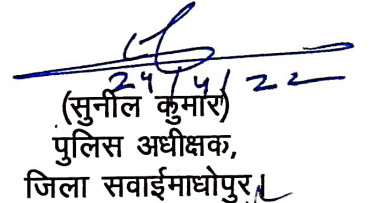 24/4/22
(सुनील कुमार)
पुलिस अधीक्षक,
जिला सवाईमाधोपुर।